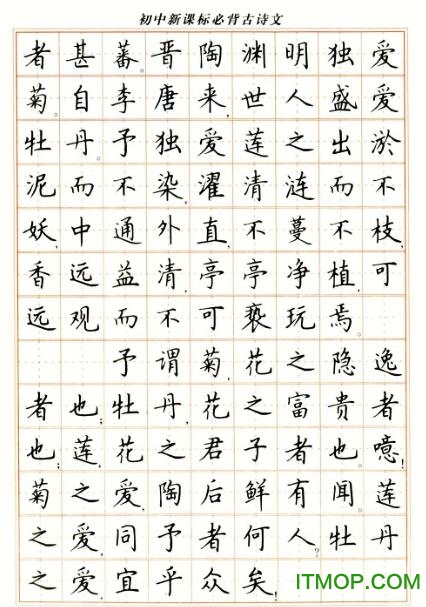 初中新课标必背古诗文
者甚蕃。晋陶渊明独爱
菊。自李唐来,世人盛爱
牡丹。予独爱莲之出淤
泥而不染,濯清涟而不
妖,中通外直,不蔓不枝,
香远益清,亭亭净植,可
远观而不可亵玩焉。
予谓菊,花之隐逸
者也;牡丹,花之富贵者
也;莲,花之君子者也。噫!
菊之爱,陶后鲜有闻。莲
之爱,同予者何人?牡丹
之爱,宜乎众矣!
ITMOP.com